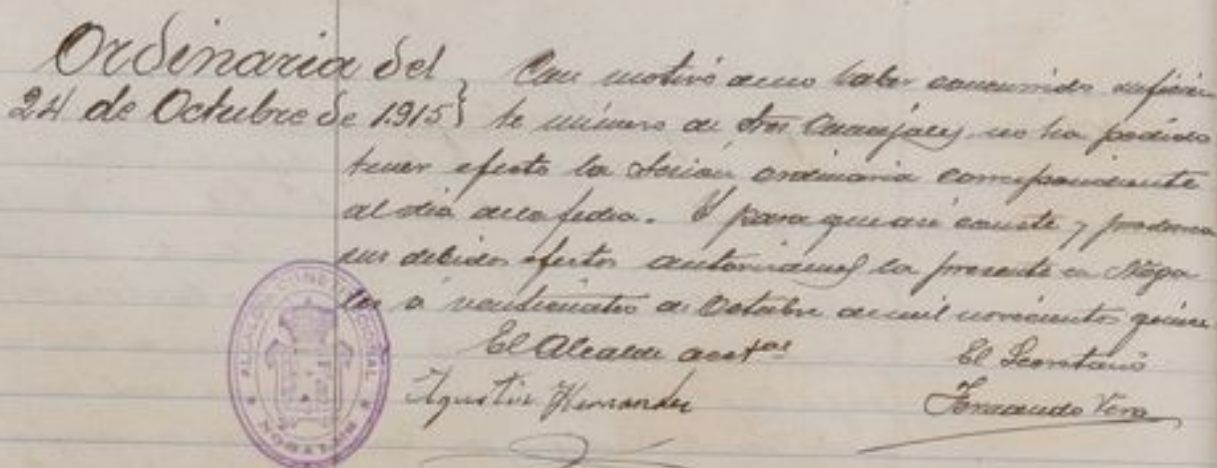 Ordinaria del
24 de Octubre de 1.915
Con motivo de no haber concurrido suficien
te número de Sres Concejales no ha podido
tener efecto la sesión ordinaria correspondiente
al día de la fecha. Y para que así conste y produzca
sus debidos efectos autorizamos la presente en Móga
les á veinticuatro de Octubre de mil novecientos quince
El Alcalde acctal
El Secretario
Agustín Hernandez
Fernando Vera